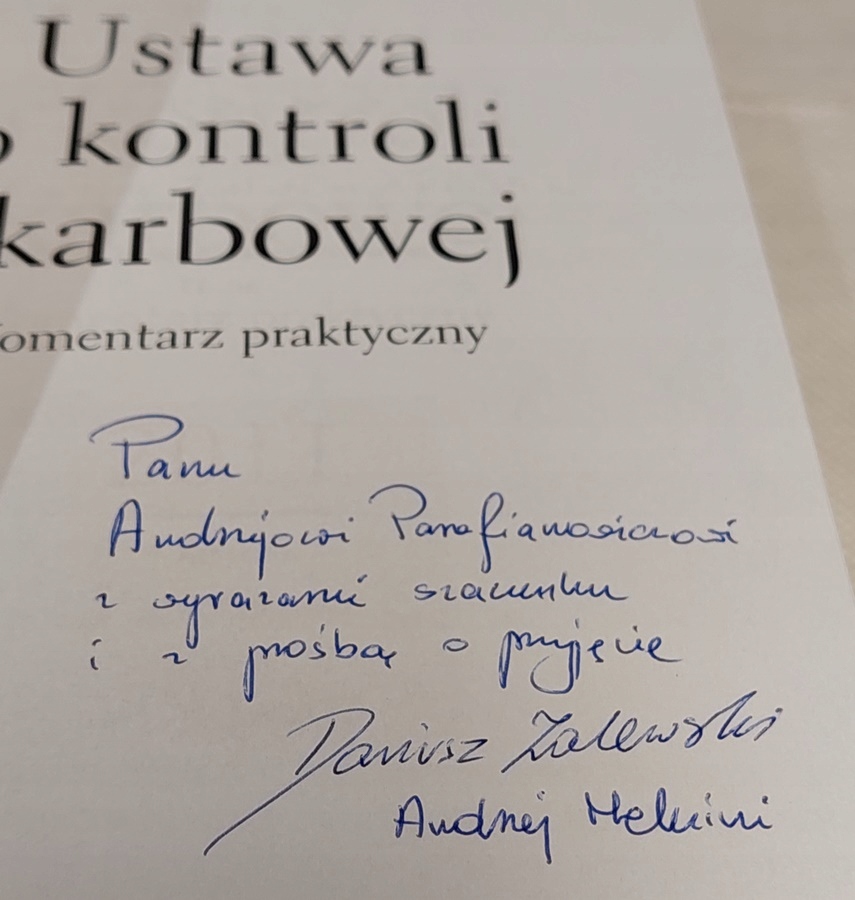 Ustawa
o kontroli
karbowej
omentarz praktyczny
Panu
Andrzejowi Parafianowiczowi
z wyrazami szacunku
i z prośbą o przyjęcie
Dariusz Zalewski
Andrzej Melezini